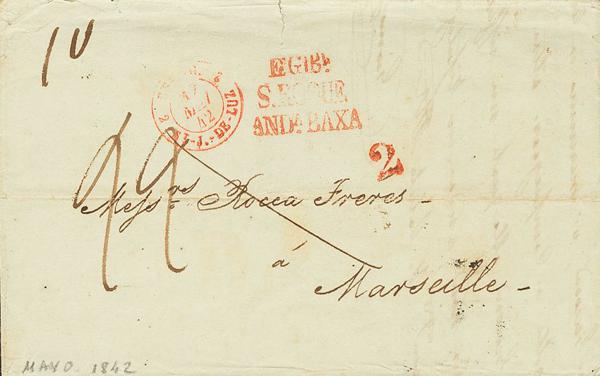 10
MAI
42
ST-J.-DE-LUZ
S.ROQUE
ANDA BAXA
2
Messrs Rocca Freres -
á
Marseille -
MAYO 1842